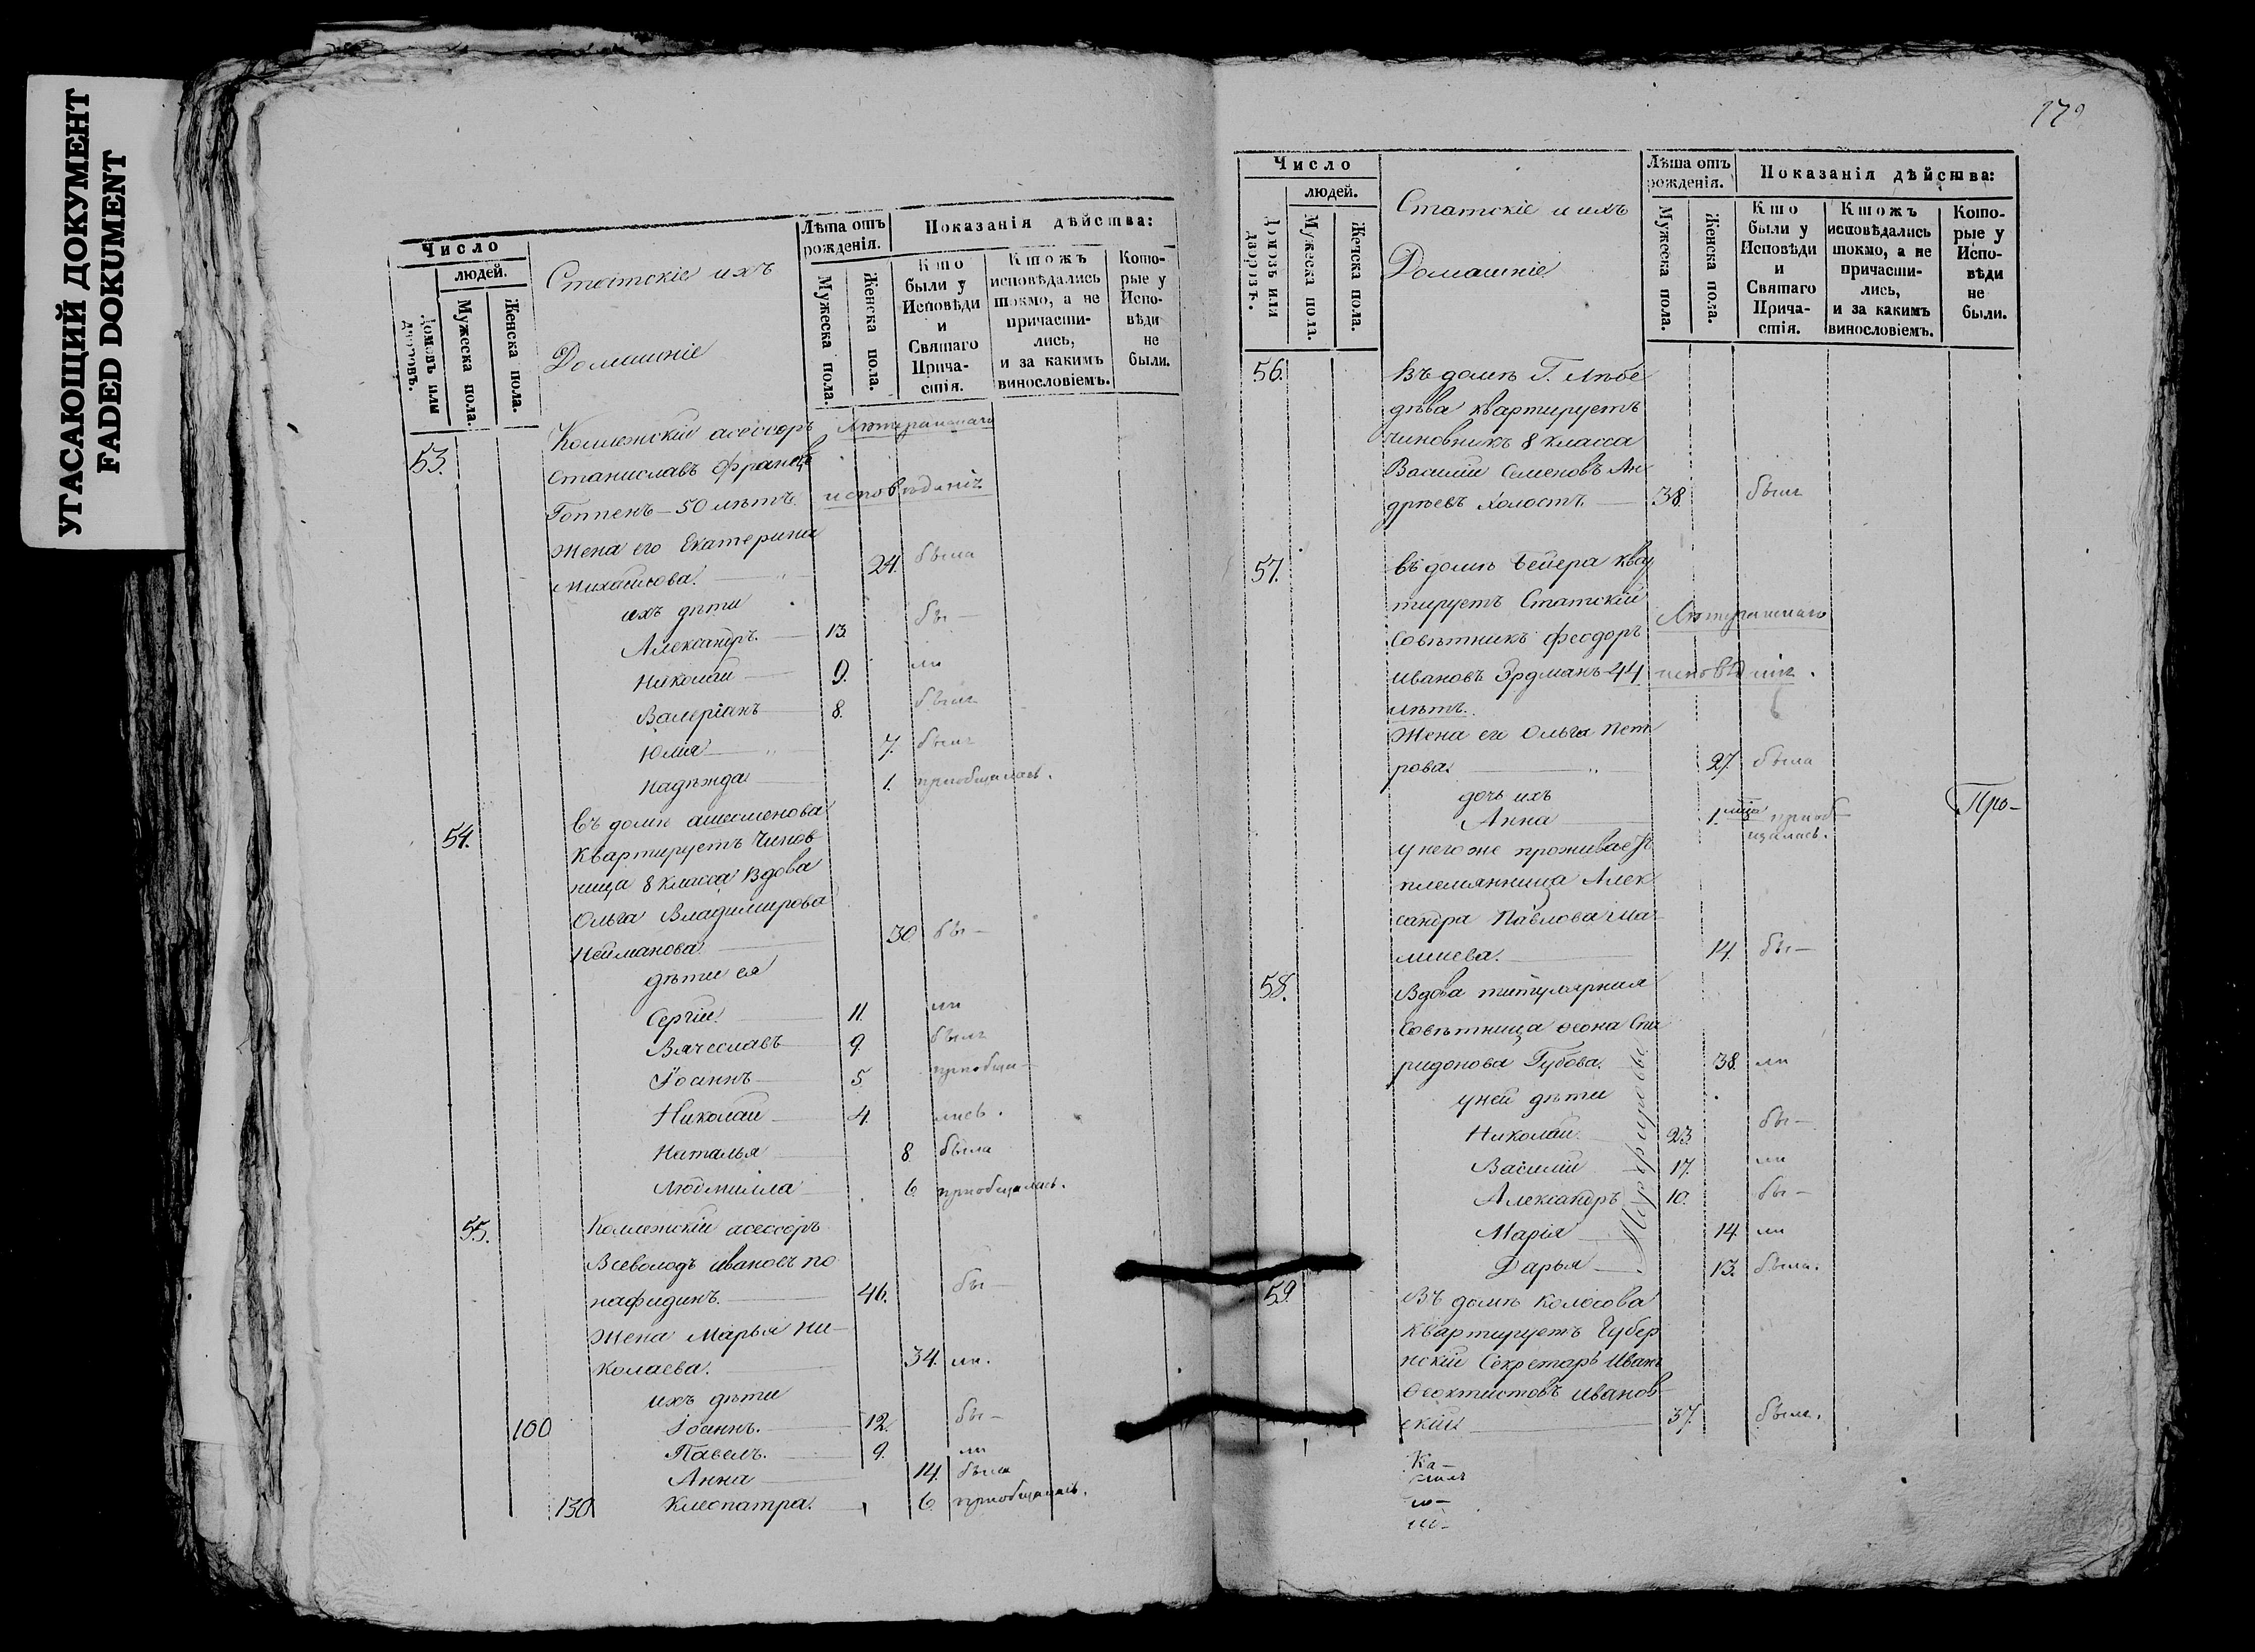 УГАСАЮЩИЙ ДОКУМЕНТ
FADED DOKUMENT
Число
людей.
Домовъ или дворовъ.
Мужеска пола.
Женска пола.
Статскіе ихъ
Домашніе
Лѣта отъ рожденія.
Мужеска пола.
Женска пола.
Показанія дѣйства:
Кто были у Исповѣди и Святаго Прича-стія.
Ктожъ исповѣдались токмо, а не причасти-лись, и за какимъ винословіемъ.
Кото-рые у Испо-вѣди не были.
53. Коллежскій асессоръ Лютеранскаго
Станиславъ Францъ
Гоппенъ — 50 лѣтъ. исповѣданія
Жена его Екатерина
Михайлова. 24. была
ихъ дѣти
Александръ. 13. бы —
Николай 9. ли
Валеріанъ 8. былъ
Юлія 7. была
Надежда 1. приобщалась.
54. Въ домѣ
квартируетъ Чинов
ница 8 класса Вдова
Ольга Владимирова
Нейманова. 30 бы —
дѣти ея
Сергій. 11. ли
Вячеславъ 9. былъ
Іоаннъ 5 приобща —
Николай 4. лись.
Наталья 8. была
Людмилла 6. приобщалась.
55. Коллежскій асессоръ
Всеволодъ Ивановъ по
нафидинъ. 46. бы —
Жена Марья Ни —
колаева. 34. ли.
ихъ дѣти
100 Іоаннъ. 12. бы —
Павелъ. 9. ли
Анна 14. была
130 Клеопатра. 6. приобщалась.
179
Число
людей.
Домовъ или дворовъ.
Мужеска пола.
Женска пола.
Статскіе и ихъ
Домашніе
Лѣта отъ рожденія.
Мужеска пола.
Женска пола.
Показанія дѣйства:
Кто были у Исповѣди и Святаго Прича-стія.
Ктожъ исповѣдались токмо, а не причасти-лись, и за какимъ винословіемъ.
Кото-рые у Испо-вѣди не были.
56. Въ домѣ Г. Лѣбе
дѣва квартируетъ
чиновникъ 8 класса
Василій Семеновъ Ан
дрѣевъ холостъ. — 38. былъ
57. въ домѣ Бейера ква
тируетъ Статскій
Совѣтникъ Феодоръ Лютеранскаго
Ивановъ Эрдманъ — 44 исповѣданія.
лѣтъ.
Жена его Ольга Пет
рова. 27. была
дочь ихъ
Анна 1. мѣца приоб —
щалась. Про —
у него же проживаетъ
племянница Алек
сандра Павлова Ма
лишева. 14. бы —
58. Вдова титулярная
Совѣтница Ѳеона Спи
ридонова Губова. 38. ли
у ней дѣти
Николай. 23. бы —
Василій 17. ли
Александръ 10. бы —
Марія 14. ли
Дарья 13. была.
59. Въ домѣ Колосова
квартируетъ Губер
нскій Секретарь Иванъ
Ѳеоктистовъ Иванов
скій 37. былъ.
Ка —